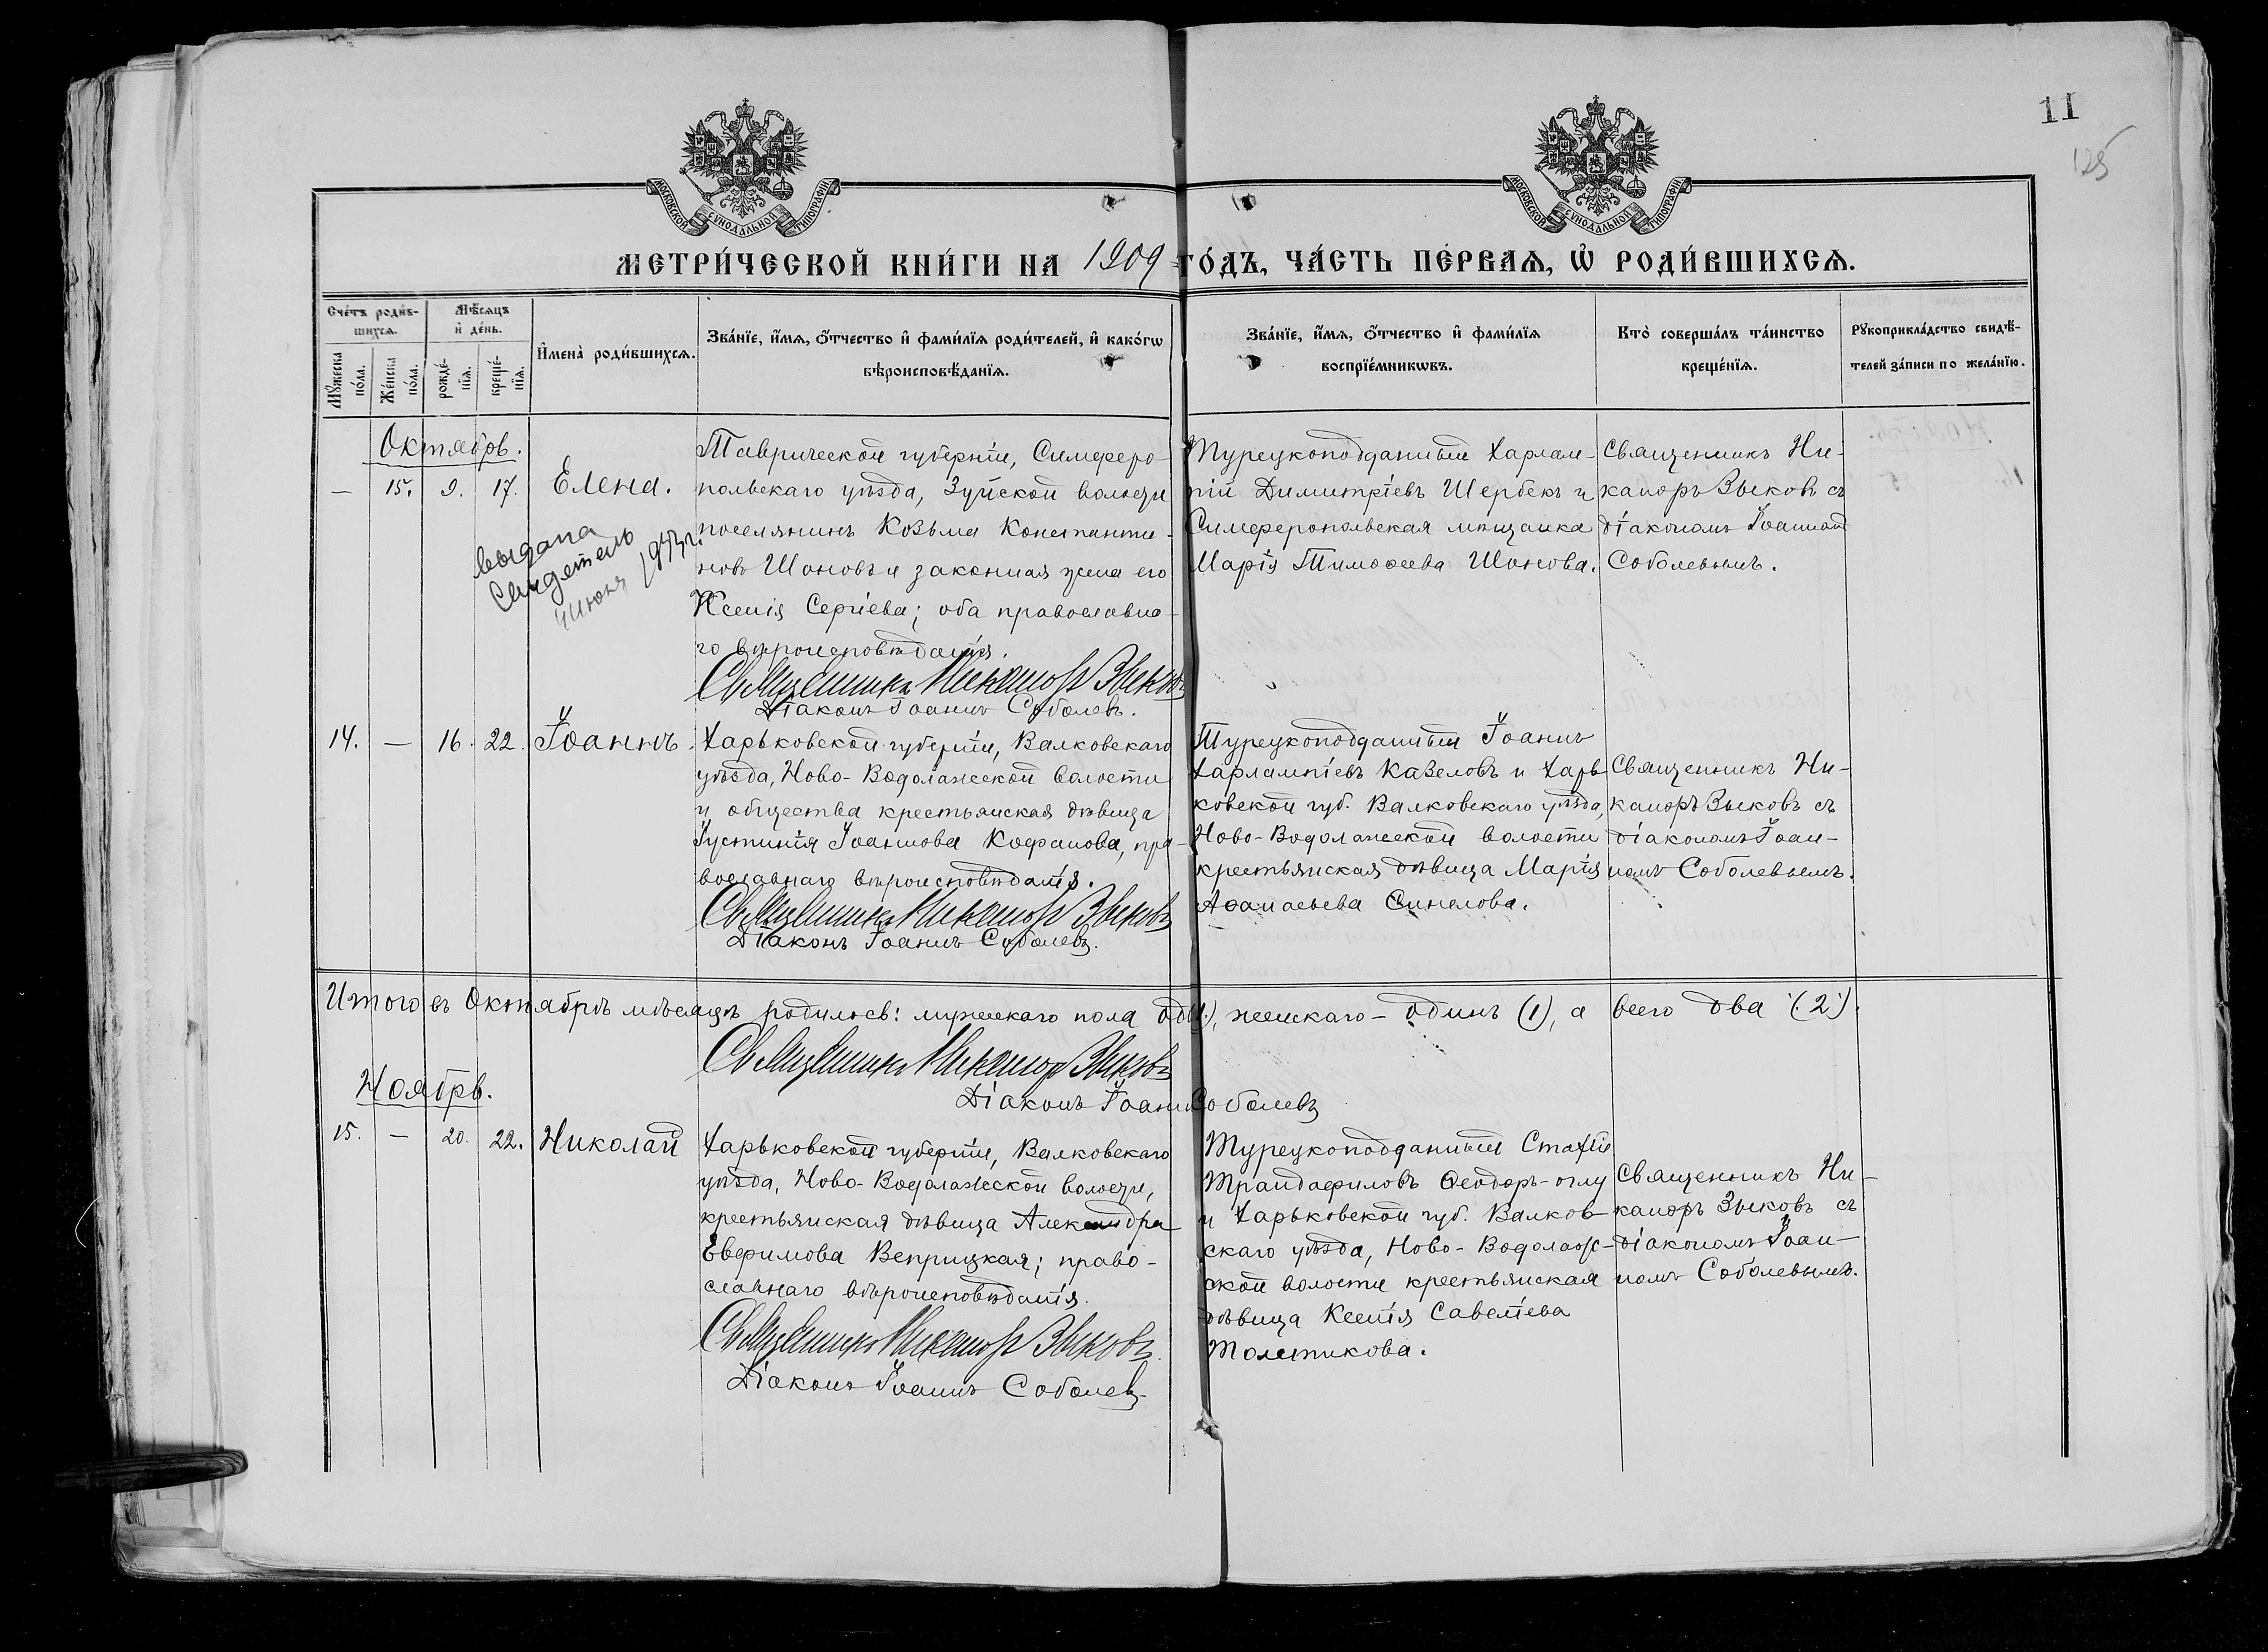 11
125
МОСКОВСКОЙ СѴНОДАЛЬНОЙ ТИПОГРАФІИ
МОСКОВСКОЙ СѴНОДАЛЬНОЙ ТИПОГРАФІИ
МЕТРИ́ЧЕСКОЙ КНИ́ГИ НА 1909 ГО́ДЪ, ЧА́СТЬ ПЕ́РВАѦ, Ѽ РОДИ́ВШИХСѦ.
Сче́тъ роди́в-
шихсѧ.
Мꙋ́жеска
по́ла.
Же́нска
по́ла.
Мѣ́сѧцъ
и҆ де́нь.
рожде́-
нїѧ.
креще́-
нїѧ.
И҆мена̀ роди́вшихсѧ.
Зва́нїе, и҆́мѧ, ѻ҆́тчество и҆ фами́лїѧ роди́телей, и҆ како́гѡ
вѣроисповѣ́данїѧ.
Зва́нїе, и҆́мѧ, ѻ҆́тчество и҆ фами́лїѧ
воспрїе́мникѡвъ.
Кто̀ соверша́лъ та́инство
креще́нїѧ.
Рꙋкоприкла́дство свидѣ́-
телей за́писи по жела́нїю.
Октябрь.
— 15. 9. 17. Елена.
Таврической губерніи, Симферо-
польскаго уѣзда, Зуйской волости
поселянинъ Козьма Константи-
новъ Шоновъ и законная жена его
Ксенія Сергіева; оба православна-
го вѣроисповѣданія.
Священникъ Никаноръ Зыковъ
Діаконъ Іоаннъ Соболевъ.
Турецкоподданный Харлам-
пій Димитріевъ Шербекъ и
Симферопольская мѣщанка
Марія Тимоѳеева Шонова.
Священникъ Ни-
каноръ Зыковъ съ
діакономъ Іоанномъ
Соболевымъ.
выдана
Свидетель
4 июня 1943 г.
14. — 16. 22. Іоаннъ.
Харьковской губерніи, Валковскаго
уѣзда, Ново-Водолажской волости
и общества крестьянская дѣвица
Іустинія Іоаннова Кофанова, пра-
вославнаго вѣроисповѣданія.
Священникъ Никаноръ Зыковъ
Діаконъ Іоаннъ Соболевъ.
Турецкоподданный Іоаннъ
Харлампіевъ Казеловъ и Харь-
ковской губ. Валковскаго уѣзда,
Ново-Водолажской волости
крестьянская дѣвица Марія
Аѳанасьева Синелова.
Священникъ Ни-
каноръ Зыковъ съ
діакономъ Іоан-
номъ Соболевымъ.
Итого въ Октябрѣ мѣсяцѣ родилось: мужскаго пола од(1), женскаго - одинъ (1), а всего два (2).
Священникъ Никаноръ Зыковъ
Діаконъ Іоаннъ Соболевъ
Ноябрь.
15. — 20. 22. Николай
Харьковской губерніи, Валковскаго
уѣзда, Ново-Водолажской волости,
крестьянская дѣвица Александра
Евфимова Веприцкая; право-
славнаго вѣроисповѣданія.
Священникъ Никаноръ Зыковъ
Діаконъ Іоаннъ Соболевъ
Турецкоподданный Стахій
Трандафиловъ Ѳеодоръ-оглу
и Харьковской губ. Валков-
скаго уѣзда, Ново-Водолаж-
ской волости крестьянская
дѣвица Ксенія Савеліева
Толстикова.
Священникъ Ни-
каноръ Зыковъ съ
діакономъ Іоан-
номъ Соболевымъ.